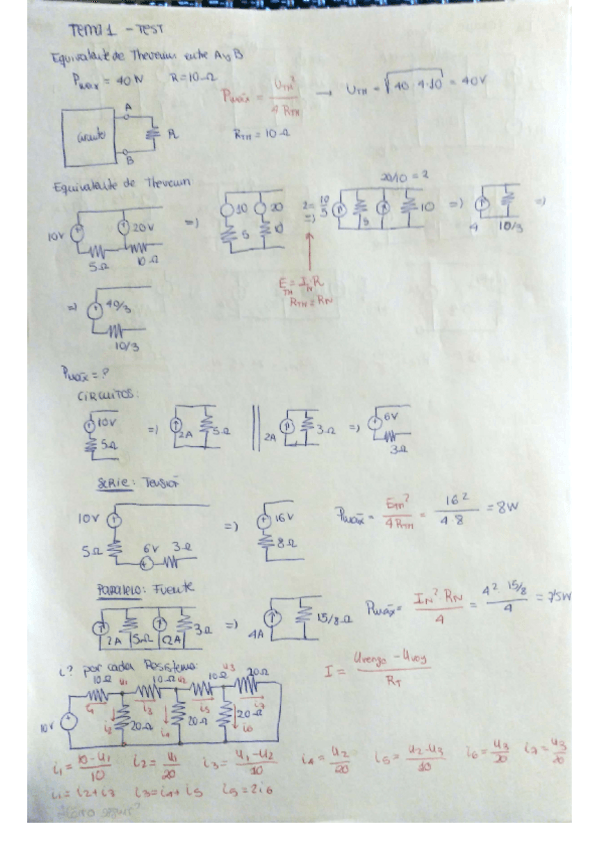 TEMA 1 - TEST
Equivalente de Thevenin entre A y B
Pmáx = 40 W R = 10 Ω Pmáx = UTH² / 4 RTH → UTH = √40·4·10 = 40V
Circuito A B R RTH = 10 Ω
Equivalente de Thevenin
10V 20V 5Ω 10Ω => 10 20 5 10 2 = 10/5 => 5 20/10 = 2 10 => 4 10/3 =>
ETH = IN·R
RTH = RN
=> 40/3 10/3
Pmáx = ?
CIRCUITOS:
10V 5Ω => 2A 5Ω 2A 3Ω => 6V 3Ω
SERIE: Tensión
10V 5Ω 6V 3Ω => 16V 8Ω Pmáx = ETH² / 4RTH = 16² / 4·8 = 8W
PARALELO: Fuente
2A 5Ω 2A 3Ω => 4A 15/8Ω Pmáx = IN²·RN / 4 = 4²·15/8 / 4 = 7,5W
i? por cada Resistencia:
10Ω u1 10Ω u2 10Ω u3 20Ω
i1 i3 i5 i7
10V i2 20Ω i4 20Ω 20Ω i6
I = Uvengo - Uvoy / RT
i1 = 10 - u1 / 10 i2 = u1 / 20 i3 = u1 - u2 / 10 i4 = u2 / 20 i5 = u2 - u3 / 10 i6 = u3 / 20 i7 = u3 / 20
i1 = i2 + i3 i3 = i4 + i5 i5 = 2i6
¿Cómo seguir?